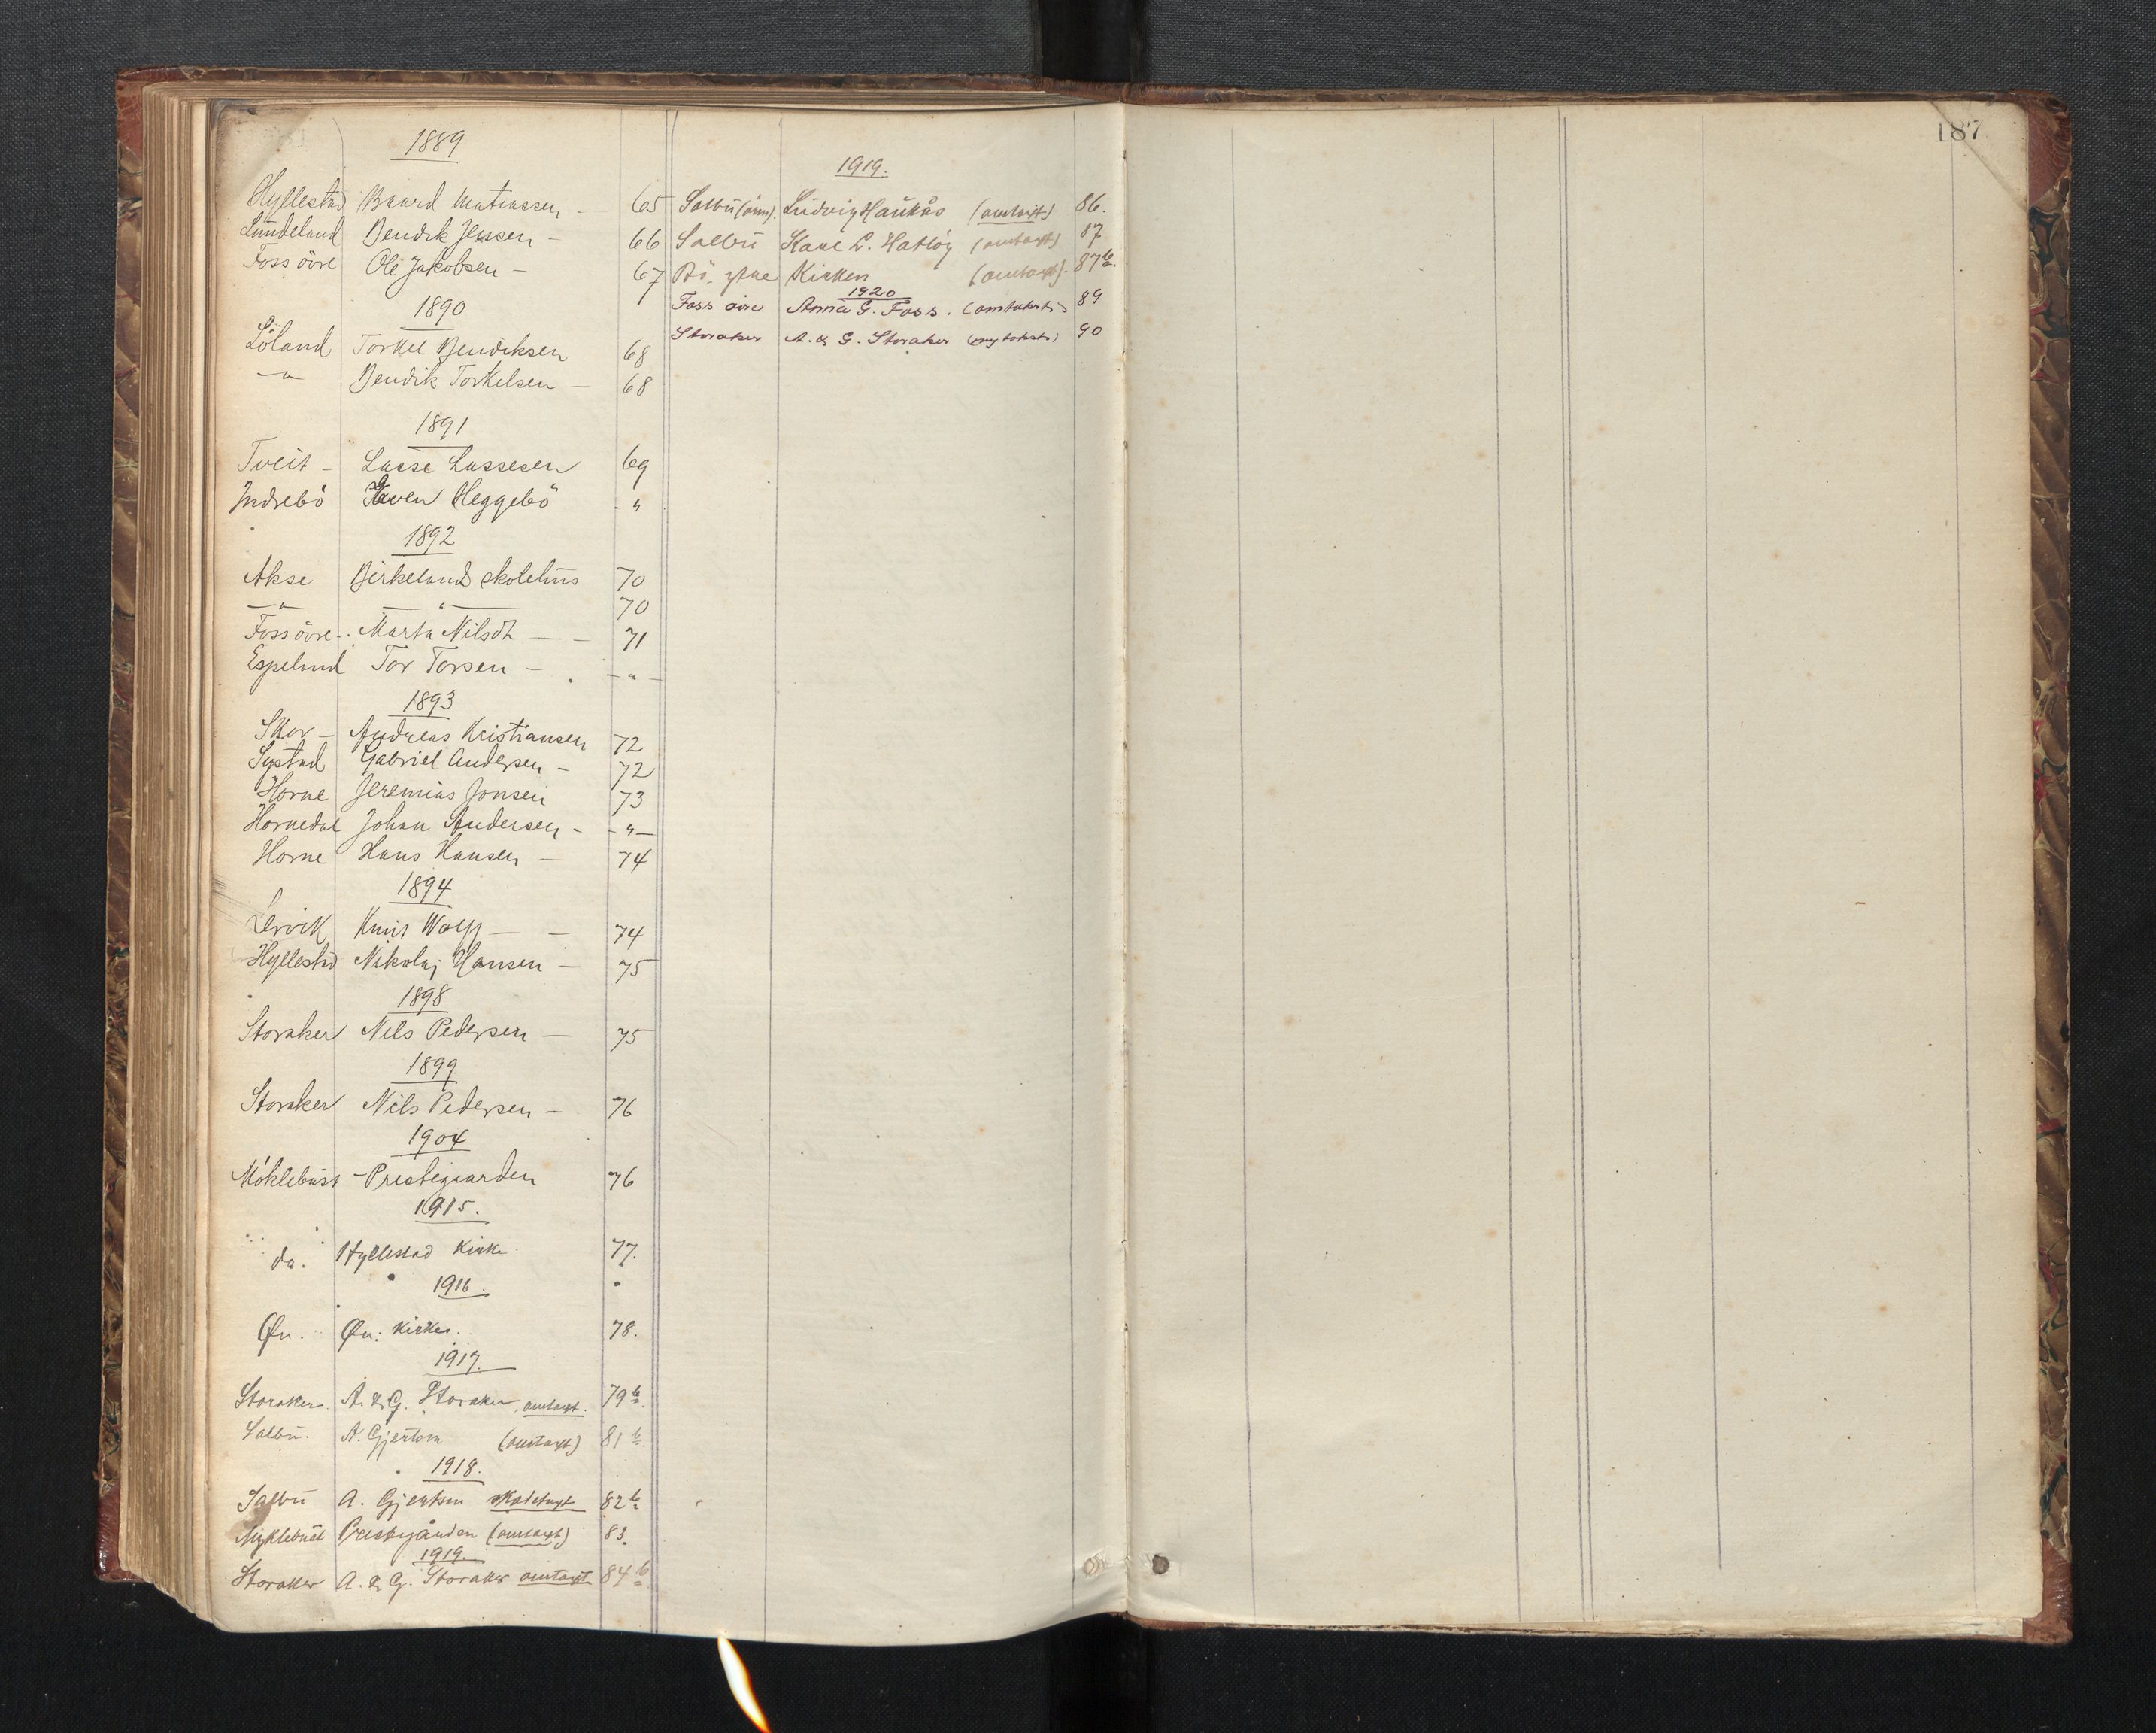 1889
Hyllestad Baard Matiassen - 65
Lundeland Bendik Jensen - 66
Foss övre Ole Jakobsen - 67
1890
Löland Torkel Bendiksen 68
— " Bendik Torkelsen - 68
1891
Tveit - Lasse Lassesen 69
Indrebö Heggebö - "
1892
Akse Birkeland skolehus 70
— " — — " — 70
Foss övre - Marta Nilsdt - - 71
Espeland Tor Torsen - - " -
1893
Skor - Andreas Kristiansen 72
Systad Gabriel Andersen - 72
Horne Jeremias Jonsen 73
Hornedal Johan Andersen - - " -
Horne Hans Hansen - 74
1894
Lervik Knut - - 74
Hyllestad Nikolaj Hansen - 75
1898
Storaker Nils Pedersen - 75
1899
Storaker Nils Pedersen - 76
1904
Möklebust - Prestegaarden 76
1915.
do. Hyllestad Kirke. 77.
1916.
Øn. Øn: Kirke. 78.
1917.
Storaker. A. & G. Storaker, omtaxt. 79 b.
Salbu. A. Gjertsen (omtaxt) 81 b.
1918.
Salbu A. Gjertsen skadetaxt 82 b.
Myklebust Prestegården (omtaxt) 83.
1919.
Storaker A. & G. Storaker omtaxt 84 b.
1919.
Salbu Ludvig Haukås (omtaxt) 86.
Salbu Karl L. Hatløy (omtaxt) 87
Bö, ytre Kirken (omtaxt). 87 b.
1920
Foss øvre Anna G. Foss. (omtakst) 89
Storaker A. & G. Storaker 90
187